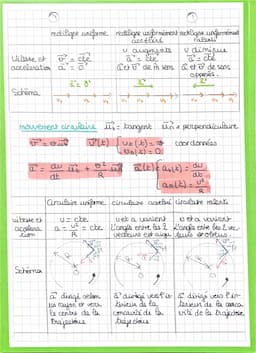 rectiligne uniforme
rectiligne uniformément accéléré
rectiligne uniformément
v augmente
v diminue
vitesse et accélération
v⃗ = cte
a⃗ = 0⃗
a⃗ = cte
a⃗ et v⃗ de m sens
a⃗ = cte
a⃗ et v⃗ de sens opposés.
Schéma
a⃗ = 0⃗
a⃗
a⃗
mouvement circulaire
u⃗t = tangent
u⃗n = perpendiculaire
v⃗(t)
coordonnées
a⃗ = dv/dt u⃗t + v²/R u⃗n
a⃗(t)
at(t) = dv/dt
an(t) = v²/R
circulaire uniforme
circulaire accéléré
circulaire ralenti
vitesse et accélération
v = cte
a = v²/R = cte
v et a varient
L'angle entre les 2 vecteurs est aigu
v et a varient
L'angle entre les 2 vecteurs est obtus.
Schéma
a⃗ dirigé selon le rayon et vers le centre de la trajectoire
a⃗ dirigé vers l'intérieur de la concavité de la trajectoire
a⃗ dirigé vers l'intérieur de la concavité de la trajectoire.